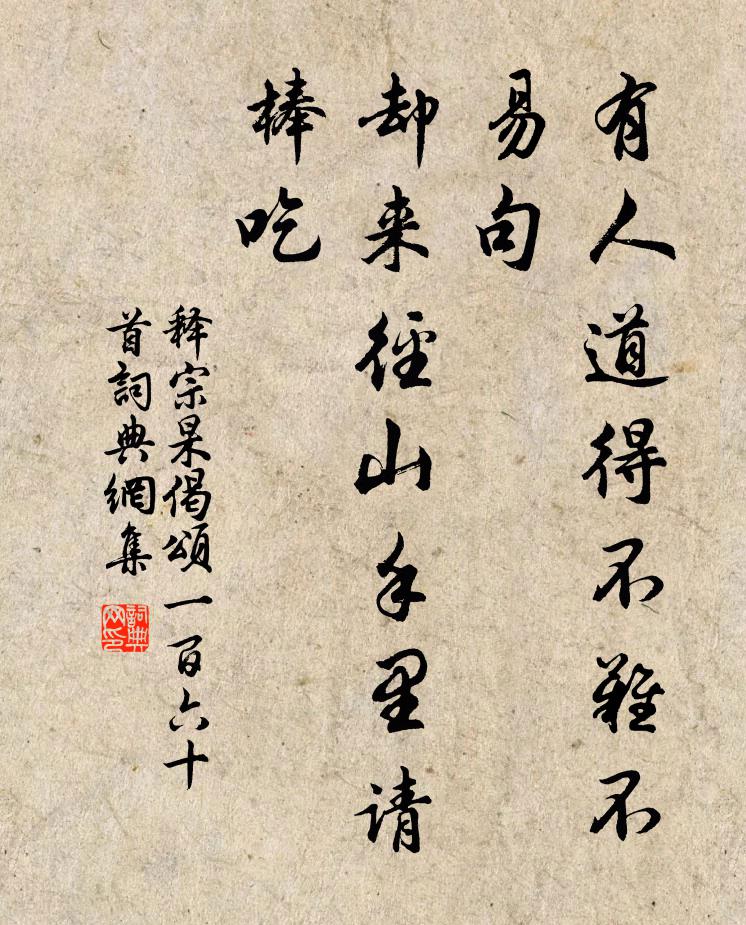 有人道得不難不
易句
却来徑山手里请
棒吃
释宗杲偈頌一百六十
首詞典網集
詞典網印